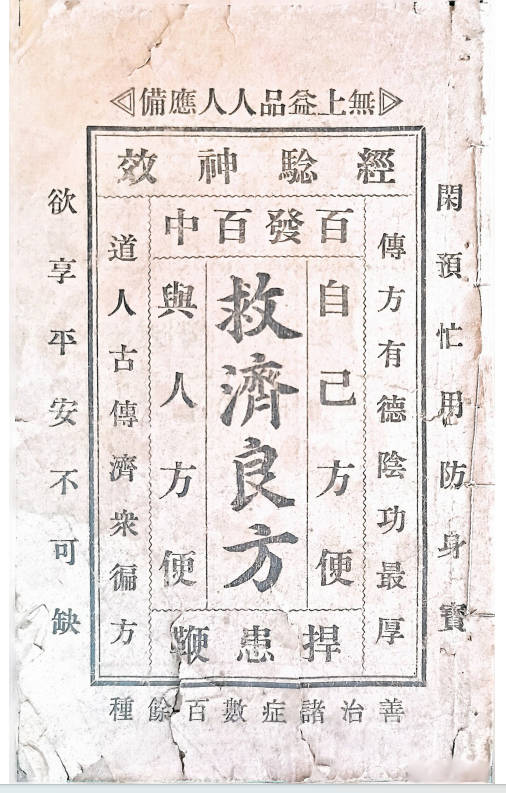 無上益品人人應備
閑預忙用防身寶
經騐神效
傳方有德陰功最厚
百發百中
自己方便
救濟良方
與人方便
道人古傳濟衆徧方
捍患鞭
欲享平安不可缺
善治諸症數百餘種